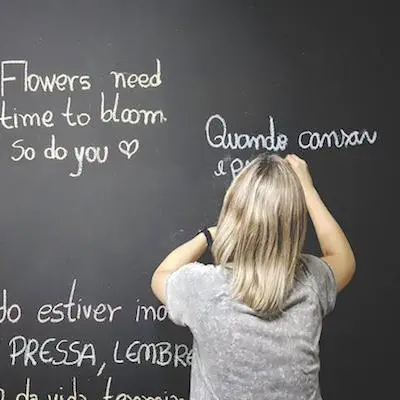 Flowers need
time to bloom.
So do you ♡
Quando cansar
estiver
PRESSA, LEMBRE
da vida